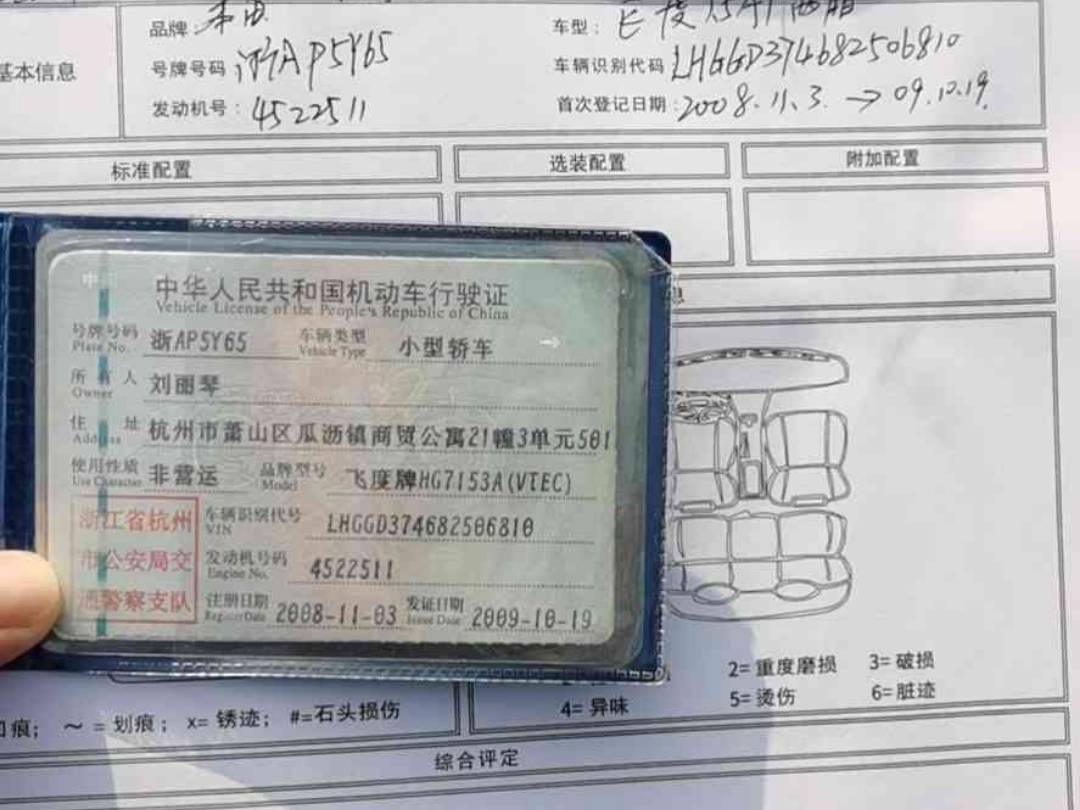 品牌: 本田
车型: 飞度 1.5AT 两厢
基本信息
号牌号码: 浙AP5Y65
车辆识别代码 LHGGD374682506810
发动机号: 4522511
首次登记日期: 2008.11.3. → 09.10.19.
标准配置 选装配置 附加配置
息
中华人民共和国机动车行驶证
Vehicle License of the People's Republic of China
号牌号码 浙AP5Y65 车辆类型 小型轿车
Plate No. Vehicle Type
所有人 刘丽琴
Owner
住址 杭州市萧山区瓜沥镇商贸公寓21幢3单元501
Address
使用性质 非营运 品牌型号 飞度牌HG7153A(VTEC)
Use Character Model
浙江省杭州
市公安局交
通警察支队
车辆识别代号 LHGGD374682506810
VIN
发动机号码 4522511
Engine No.
注册日期 2008-11-03 发证日期 2009-10-19
Register Date Issue Date
2= 重度磨损 3= 破损
4= 异味 5= 烫伤 6= 脏迹
痕; ～ = 划痕; x= 锈迹; #=石头损伤
综合评定